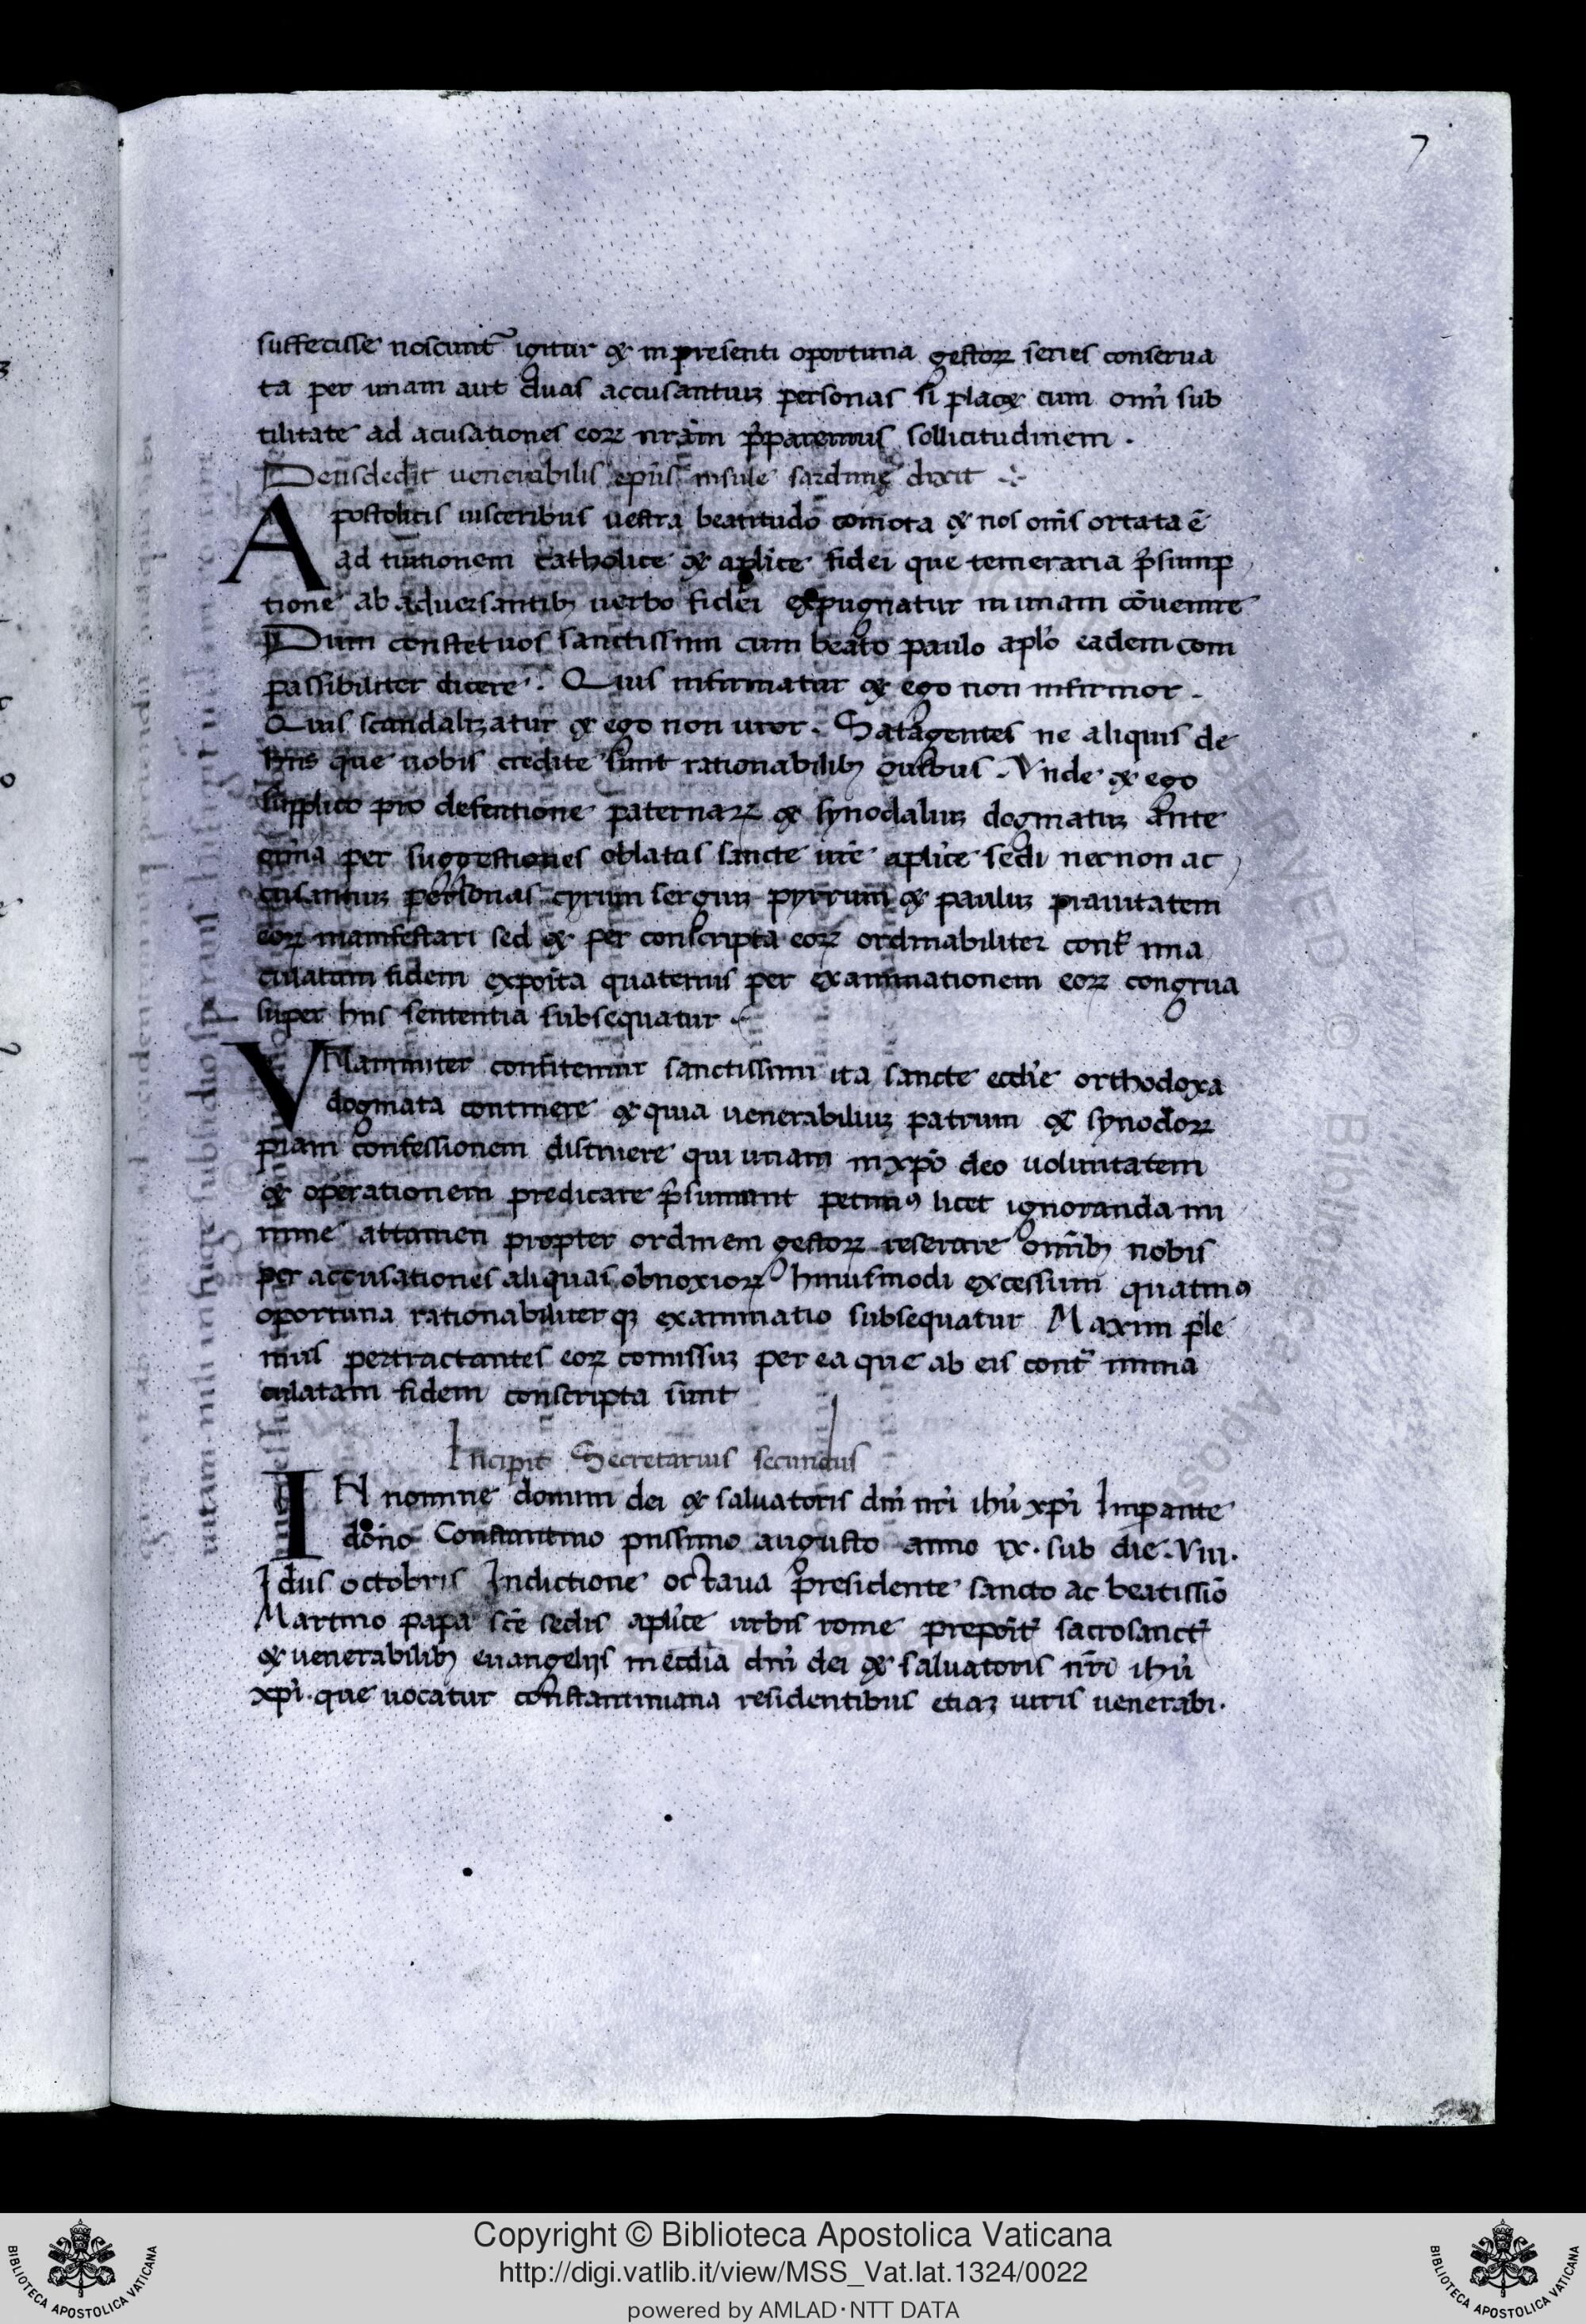 7
suffecisse noscunt᷑ igitur & in presenti oportuna gestoꝝ series conserua
ta per unam aut duas accusantiuꝫ personas si plac& cum omĩ sub
tilitate ad acusationes eoꝝ nr̃am p̃paremus sollicitudinem .
Deusdedit uenerabilis ep̃us insule sardinię dixit
Apostolicis uisceribus uestra beatitudo comota & nos om̃s ortata ẽ
ad tuitionem catholice & apl̃ice fidei que temeraria p̃sump
tione ab aduersantibꝫ uerbo fidei expugnatur in unam cõuenire
Dum constet uos sanctissimi cum beato paulo apl̃o eadem com
passibiliter dicere . Quis infirmatur & ego non infirmor .
Quis scandalizatur & ego non uror . Satagentes ne aliquis de
hiis que uobis credite sunt rationabilibꝫ ouibus . Vnde & ego
supplico pro defentione paternaꝝ & synodaliuꝫ dogmatuꝫ ante
per suggestiones oblatas sancte ur̃e apl̃ice sedi necnon ac
cusantiuꝫ personas cyrum sergiuꝫ pyrrum & pauluꝫ prauitatem
eoꝝ manifestari sed & per conscripta eoꝝ ordinabiliter cont᷑ ima
culatam fidem exposita quatenus per examinationem eoꝝ congrua
super hiis sententia subsequatur
VNanimiter confitemur sanctissimi ita sancte eccl̃ie orthodoxa
dogmata continere & quia uenerabiliuꝫ patrum & synodoꝝ
piam confessionem distruere qui unam in xp̃o deo uoluntatem
& operationem predicare p̃sumunt petimꝰ licet ignoranda mi
nime attamen propter ordinem gestoꝝ reserare omĩbꝫ nobis
per accusationes aliquas obnoxioꝝ hmiusmodi excessum quatinꝰ
oportuna rationabiliterqꝫ examinatio subsequatur Maxim ple
nius pertractantes eoꝝ comissuꝫ per ea que ab eis cont᷑ imma
culatam fidem conscripta sunt
Incipit Secretarius secundus
IN nomine domini dei & saluatoris dñi nr̃i ihũ xp̃i Impante
dono Constantino piissimo augusto anno ix . sub die . viii .
Idus octobris Indictione octaua Presidente sancto ac beatissio
Martino papa sc̃e sedis apl̃ice urbis rome preposit᷑ sacrosanct᷑
& uenerabilibꝫ euangelijs in eccl̃ia dñi dei & saluatoris nr̃i ihũ
xp̃i . que uocatur constantiniana residentibus etiaꝫ uiris uenerabi .
Copyright © Biblioteca Apostolica Vaticana
http://digi.vatlib.it/view/MSS_Vat.lat.1324/0022
powered by AMLAD·NTT DATA
BIBLIOTECA APOSTOLICA VATICANA
BIBLIOTECA APOSTOLICA VATICANA